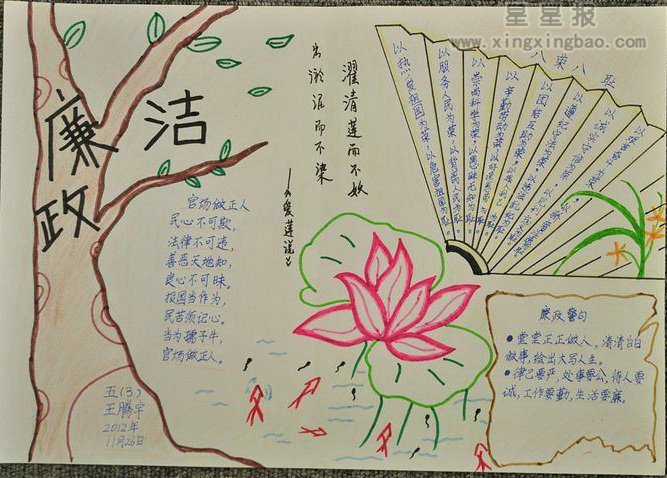 星星报
www.xingxingbao.com
廉洁
政
出淤泥而不染
濯清莲而不妖
——《爱莲说》
八荣八耻
以热爱祖国为荣，以危害祖国为耻。
以服务人民为荣，以背离人民为耻。
以崇尚科学为荣，以愚昧无知为耻。
以辛勤劳动为荣，以好逸恶劳为耻。
以团结互助为荣，以损人利己为耻。
以遵纪守法为荣，以违法乱纪为耻。
以诚实守信为荣
以艰苦奋斗为荣
官场做正人
民心不可欺，
法律不可违，
善恶天地知，
良心不可昧。
报国当作为，
民苦须记心。
当为孺子牛，
官场做正人。
五(3)
王腾宇
2012年
11月26日
廉政警句
●堂堂正正做人，清清白白
做事，绘出大写人生。
●律己要严，处事要公，待人要
诚，工作要勤，生活要廉。